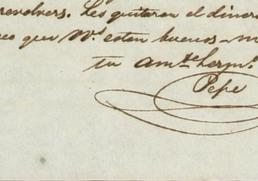 revolvers. Les quitaron el dinero
que Vds. esten buenos
tu amte. hermo.
Pepe